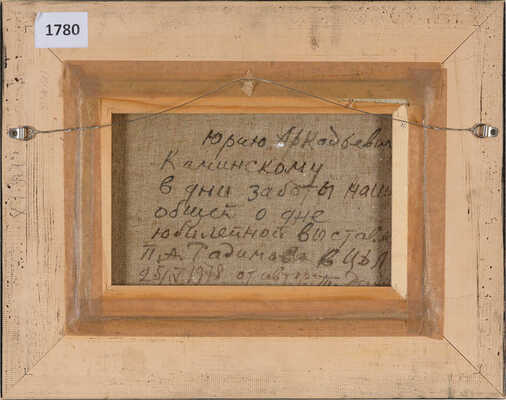 1780
Юрию Аркадьеви
Каминскому
в дни заботы наш
общей о дне
юбилейной выстав
П. А. Радимова в ЦДЛ
25/V 1978 от автора